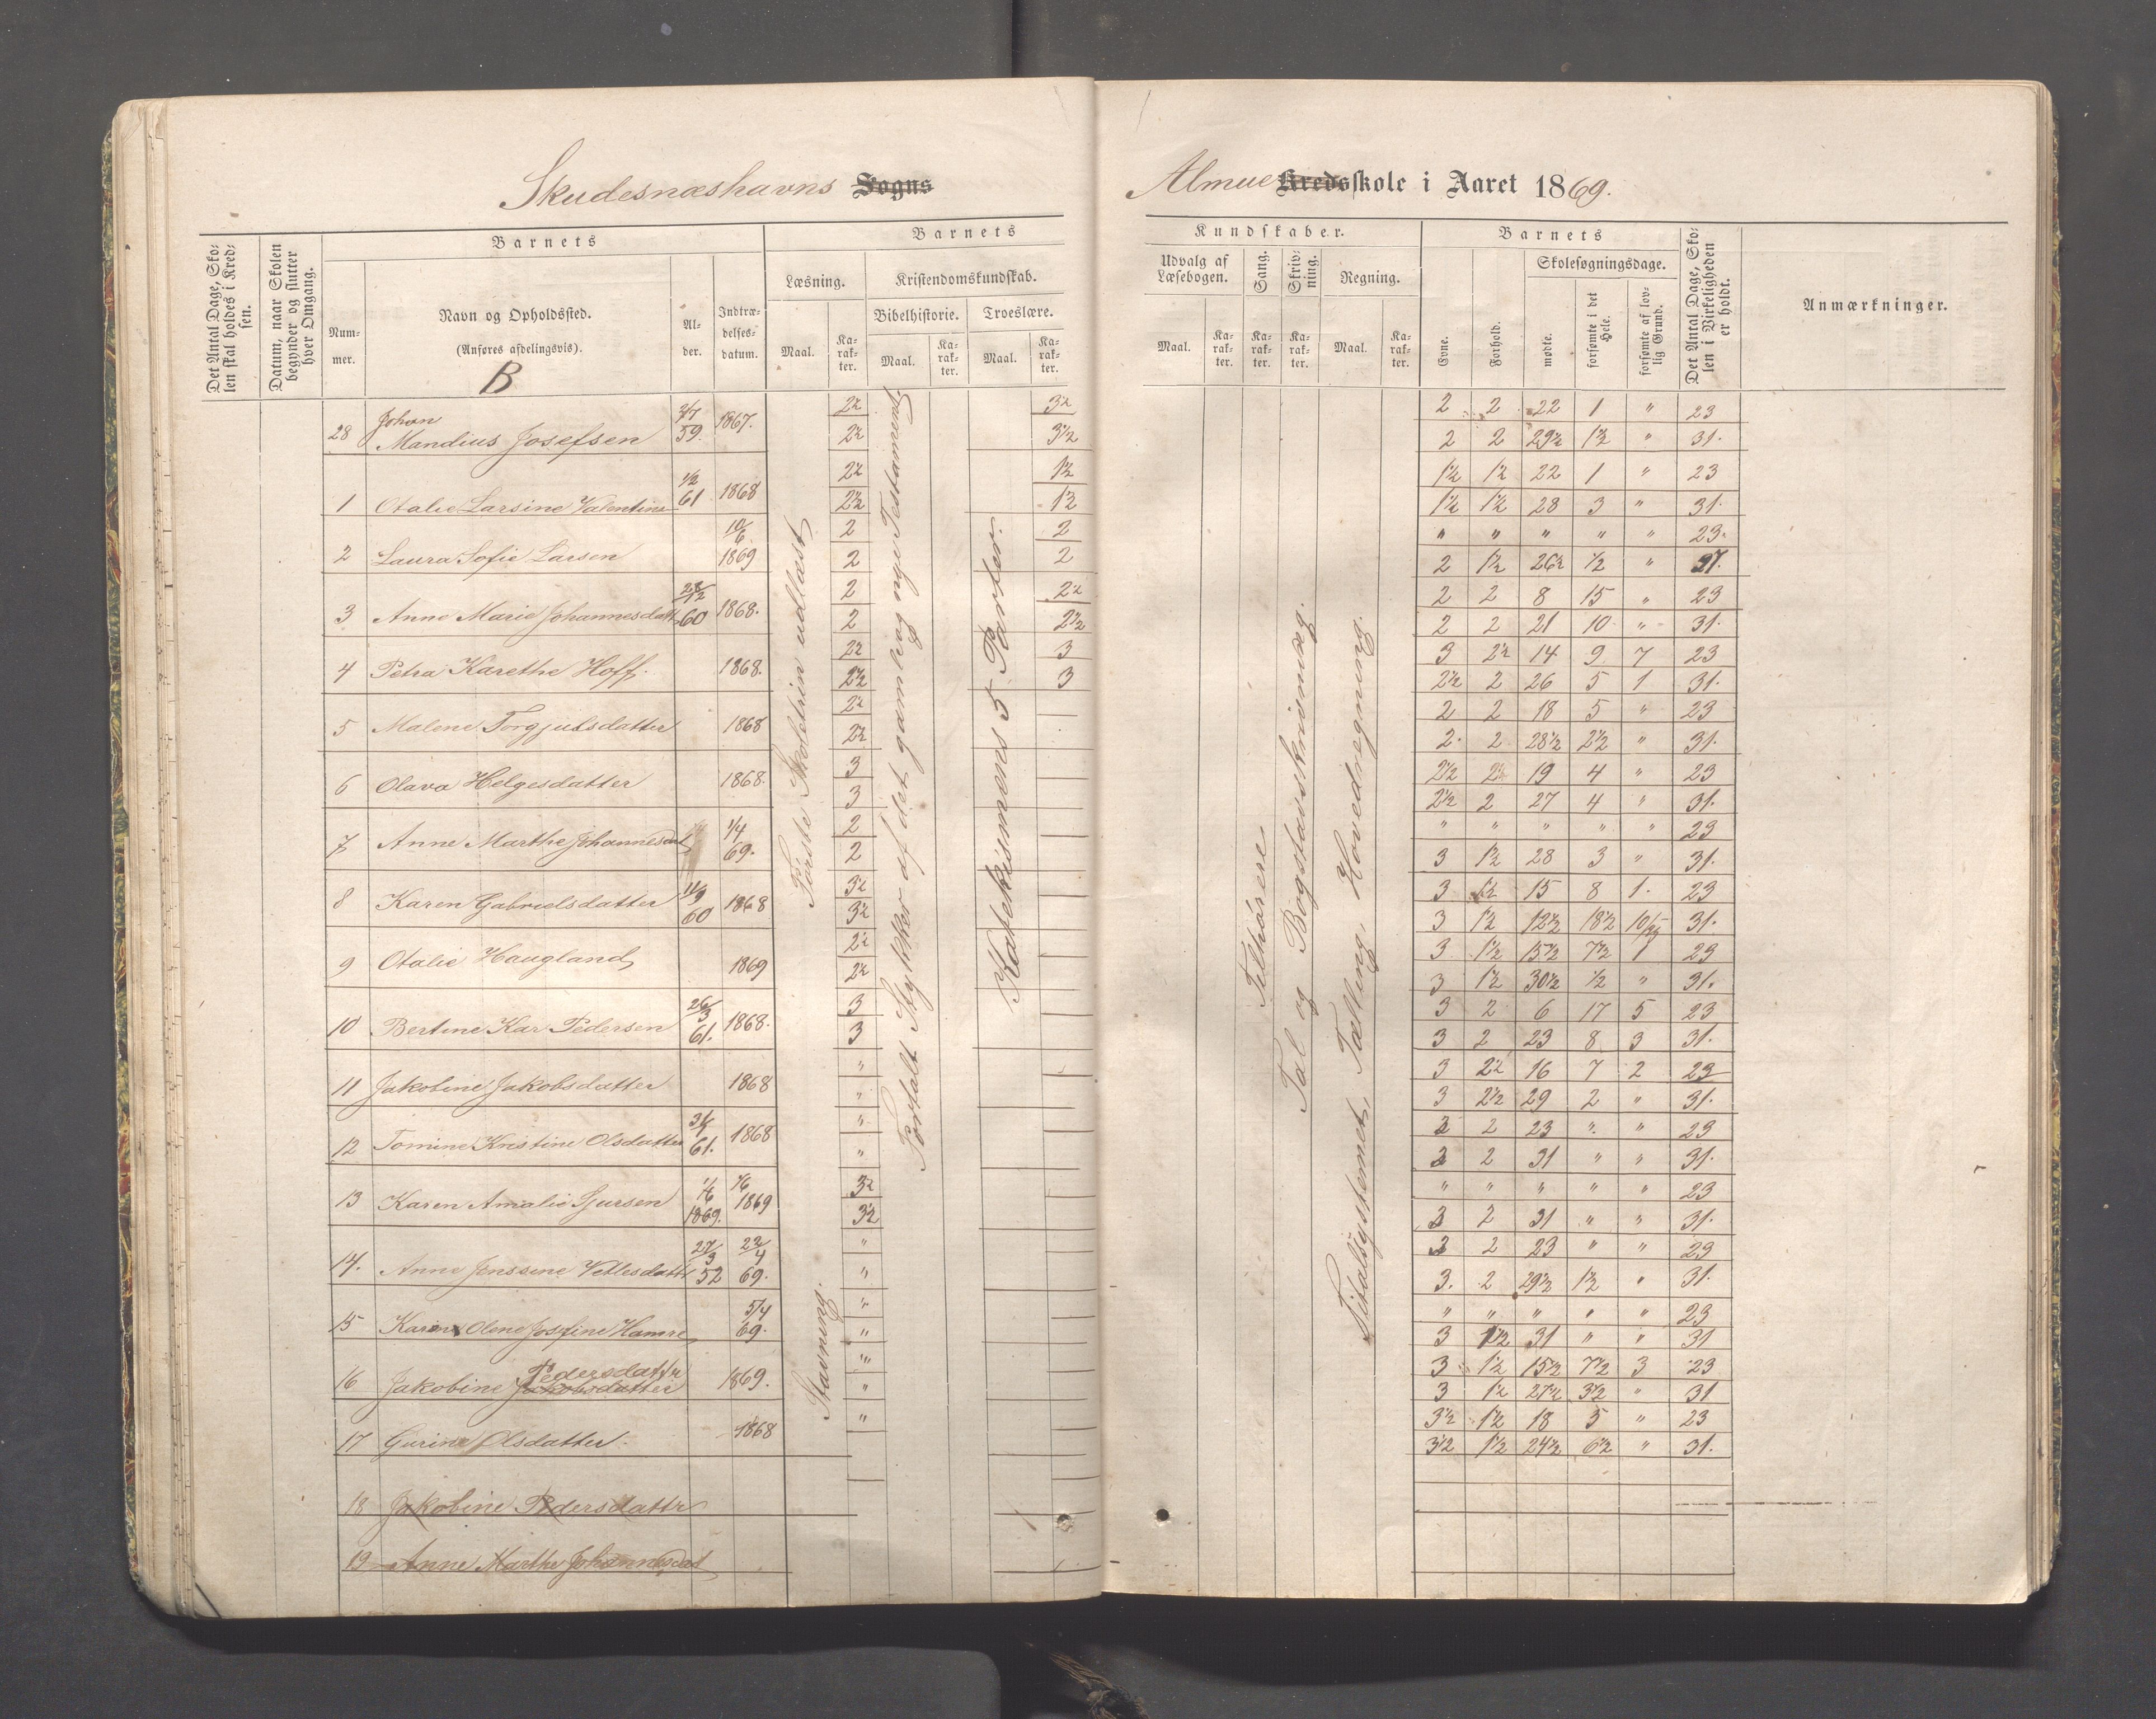 Skudesnæshavns Sogns
Almue Kredsskole i Aaret 1869.
Det Antal Dage, Skolen skal holdes i Kredsen.
Datum, naar Skolen begynder og slutter hver Omgang.
Barnets
Nummer.
Navn og Opholdssted.
(Anføres afdelingsvis).
B
Alder.
Indtrædelsesdatum.
Barnets
Læsning.
Maal.
Karakter.
Kristendomskundskab.
Bibelhistorie.
Maal.
Karakter.
Troeslære.
Maal.
Karakter.
Kundskaber.
Udvalg af Læsebogen.
Maal.
Karakter.
Sang.
Karakter.
Skrivning.
Karakter.
Regning.
Maal.
Karakter.
Barnets
Evne.
Forhold.
Skolesøgningsdage.
mødte.
forsømte i det Hele.
forsømte af lovlig Grund.
Det Antal Dage, Skolen i Virkeligheden er holdt.
Anmærkninger.
Første Skoletrin udlæst
Stavning.
Fortalt Stykker af det gamle og nye Testament
Katekismens 5 Parter.
Tilhørere
Tal og Bogstavskrivning.
Titalsystemet, Tælling, Hovedregning.
28 Johan Mandius Josefsen 59. 1867. 2½ 3½ 2 2 22 1 " 23
2½ 3½ 2 2 29½ 1½ " 31.
1 Otalie Larsine Valentins 1/2 61 1868 2½ 1½ 1½ 1½ 22 1 " 23
2½ 1½ 1½ 1½ 28 3 " 31.
2 Laura Sofie Larsen 10/6 1869 2 2 " " " " " 23.
2 2 2 1½ 26½ ½ " 27.
3 Anne Marie Johannesdatt 28/12 60 1868. 2 2½ 2 2 8 15 " 23
2 2½ 2 2 21 10 " 31.
4 Petra Karethe Hoff. 1868. 2½ 3 3 2½ 14 9 7 23
2½ 3 2½ 2 26 5 1 31.
5 Malene Torgjulsdatter 1868 2½ 2 2 18 5 " 23
2½ 2 2 28½ 2½ " 31.
6 Olava Helgesdatter 1868. 3 2½ 2½ 19 4 " 23
3 2½ 2 27 4 " 31.
7 Anne Marthe Johannesdat 1/4 69. 2 " " " " " 23
2 3 1½ 28 3 " 31.
8 Karen Gabrielsdatter 11/9 60 1868 3½ 3 1½ 15 8 1. 23
3½ 3 1½ 12½ 18½ 31.
9 Otalie Haugland 1869 2½ 3 1½ 15½ 7½ 1 23
2½ 3 1½ 30½ ½ " 31.
10 Bertine Kar Pedersen 26/3 61. 1868. 3 3 2 6 17 5 23
3 3 2 23 8 3 31.
11 Jakobine Jakobsdatter 1868 " 3 2½ 16 7 2 23
" 3 2½ 29 2 " 31.
12 Tomine Kristine Olsdatter 61. 1868 " 2 23 " " 23
" 2 31 " " 31.
13 Karen Amalie Sjursen 1/6 1869. 1/6 1869 3½ " " " " " 23
3½ 2 31 " " 31.
14. Anne Jenssine Vetlesdatt 27/3 52 22/4 69. " 2 23 " " 23
" 3. 2 29½ 1½ " 31.
15 Karen Olene Josefine Hamre 5/4 69. " " " " " " 23
" 3 1½ 31 " " 31
16 Jakobine Jakobsdatter Pedersdattr 1869. " 3 1½ 15½ 7½ 3 23
" 3 1½ 27½ 3½ " 31
17 Gurine Olsdatter. 1868 " 3½ 1½ 18 5 " 23
3½ 1½ 24½ 6½ " 31.
18 Jakobine Pedersdattr
19 Anne Marthe Johannesdat